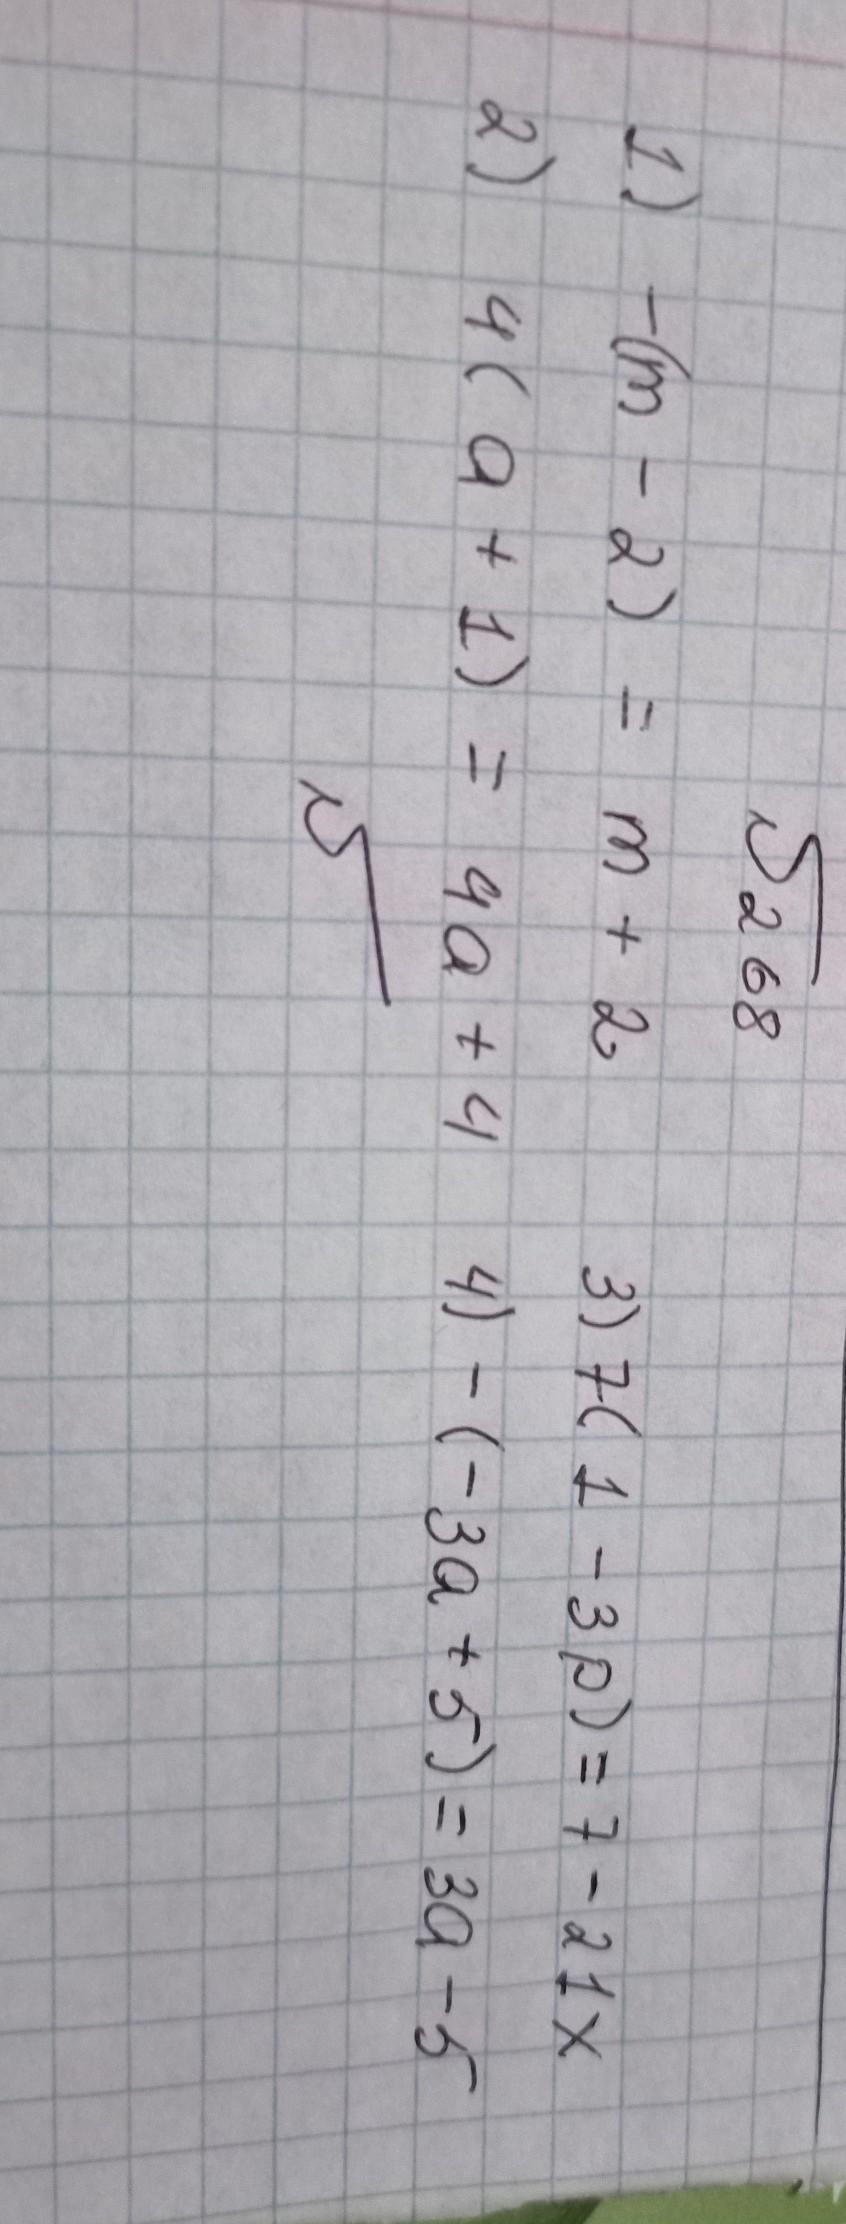 √268
1) -(m - 2) = m + 2
3) 7(1 - 3p) = 7 - 21x
2) 4(a + 1) = 4a + 4
4) -(-3a + 5) = 3a - 5
√